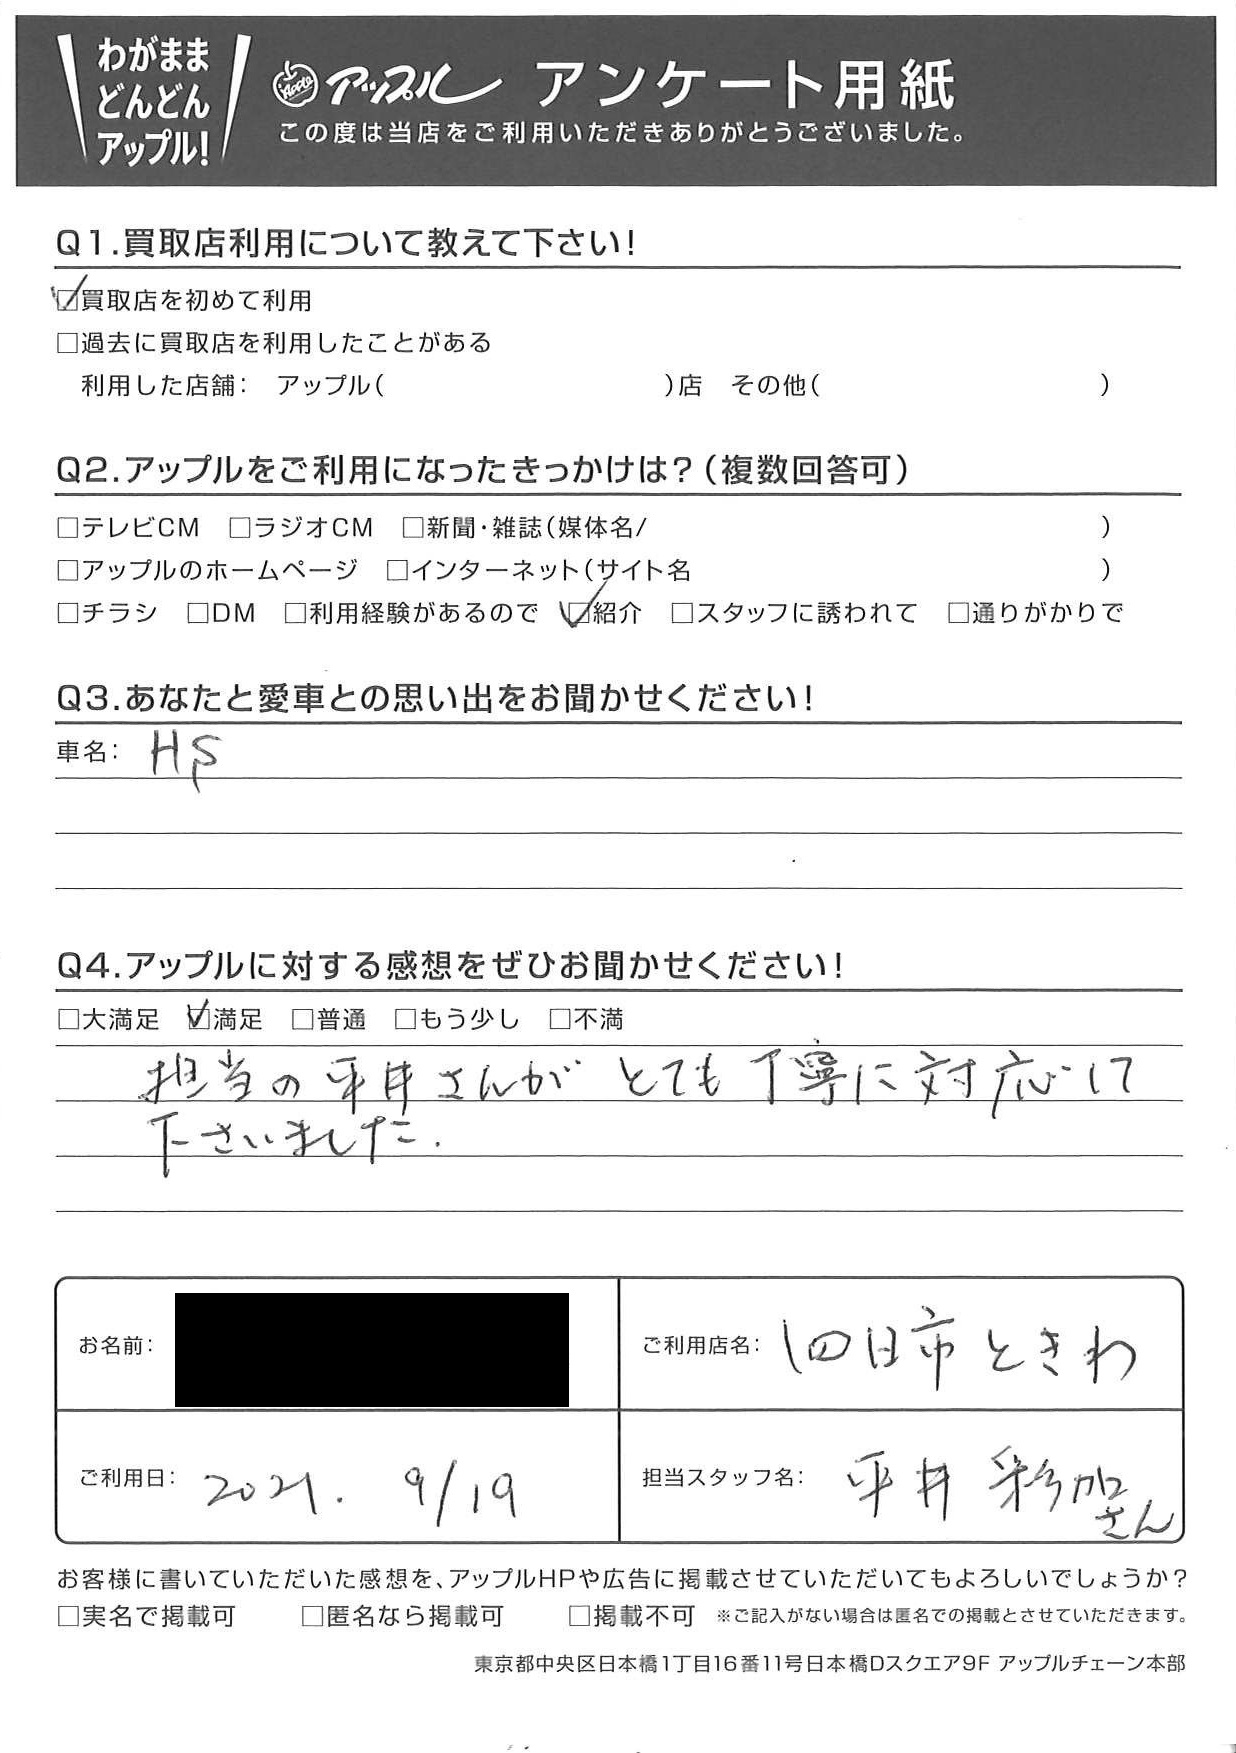 わがまま
どんどん
アップル!
Apple アップル アンケート用紙
この度は当店をご利用いただきありがとうございました。
Q1.買取店利用について教えて下さい!
☑買取店を初めて利用
□過去に買取店を利用したことがある
利用した店舗: アップル( )店 その他( )
Q2.アップルをご利用になったきっかけは?(複数回答可)
□テレビCM □ラジオCM □新聞・雑誌(媒体名/ )
□アップルのホームページ □インターネット(サイト名 )
□チラシ □DM □利用経験があるので ☑紹介 □スタッフに誘われて □通りがかりで
Q3.あなたと愛車との思い出をお聞かせください!
車名:
Q4.アップルに対する感想をぜひお聞かせください!
□大満足 ☑満足 □普通 □もう少し □不満
担当の平井さんがとても丁寧に対応して
下さいました.
お名前:
ご利用店名: 四日市ときわ
ご利用日: 2021. 9/19
担当スタッフ名: 平井 彩加さん
お客様に書いていただいた感想を、アップルHPや広告に掲載させていただいてもよろしいでしょうか?
□実名で掲載可 □匿名なら掲載可 □掲載不可 ※ご記入がない場合は匿名での掲載とさせていただきます。
東京都中央区日本橋1丁目16番11号日本橋Dスクエア9F アップルチェーン本部